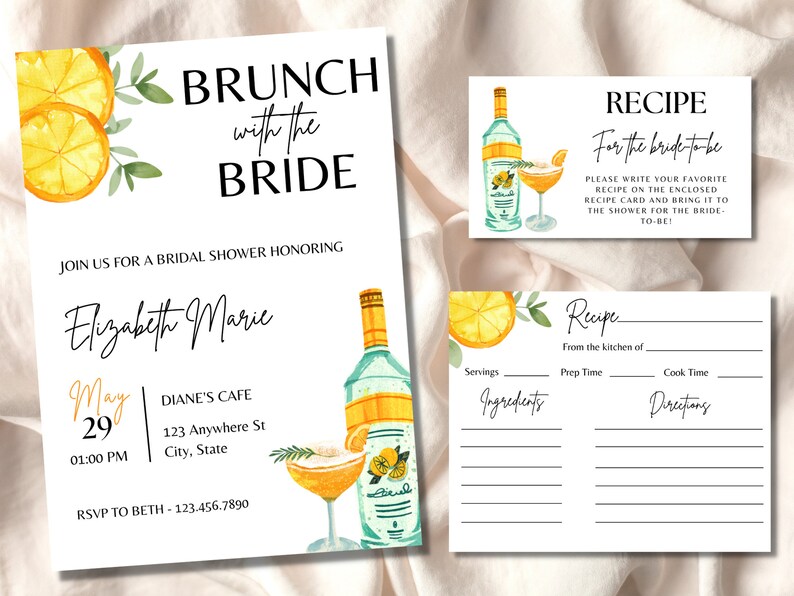 BRUNCH
with the
BRIDE
JOIN US FOR A BRIDAL SHOWER HONORING
Elizabeth Marie
May
29
01:00 PM
DIANE'S CAFE
123 Anywhere St
City, State
RSVP TO BETH - 123.456.7890
RECIPE
For the bride-to-be
PLEASE WRITE YOUR FAVORITE
RECIPE ON THE ENCLOSED
RECIPE CARD AND BRING IT TO
THE SHOWER FOR THE BRIDE-
TO-BE!
Recipe
From the kitchen of
Servings Prep Time Cook Time
Ingredients Directions